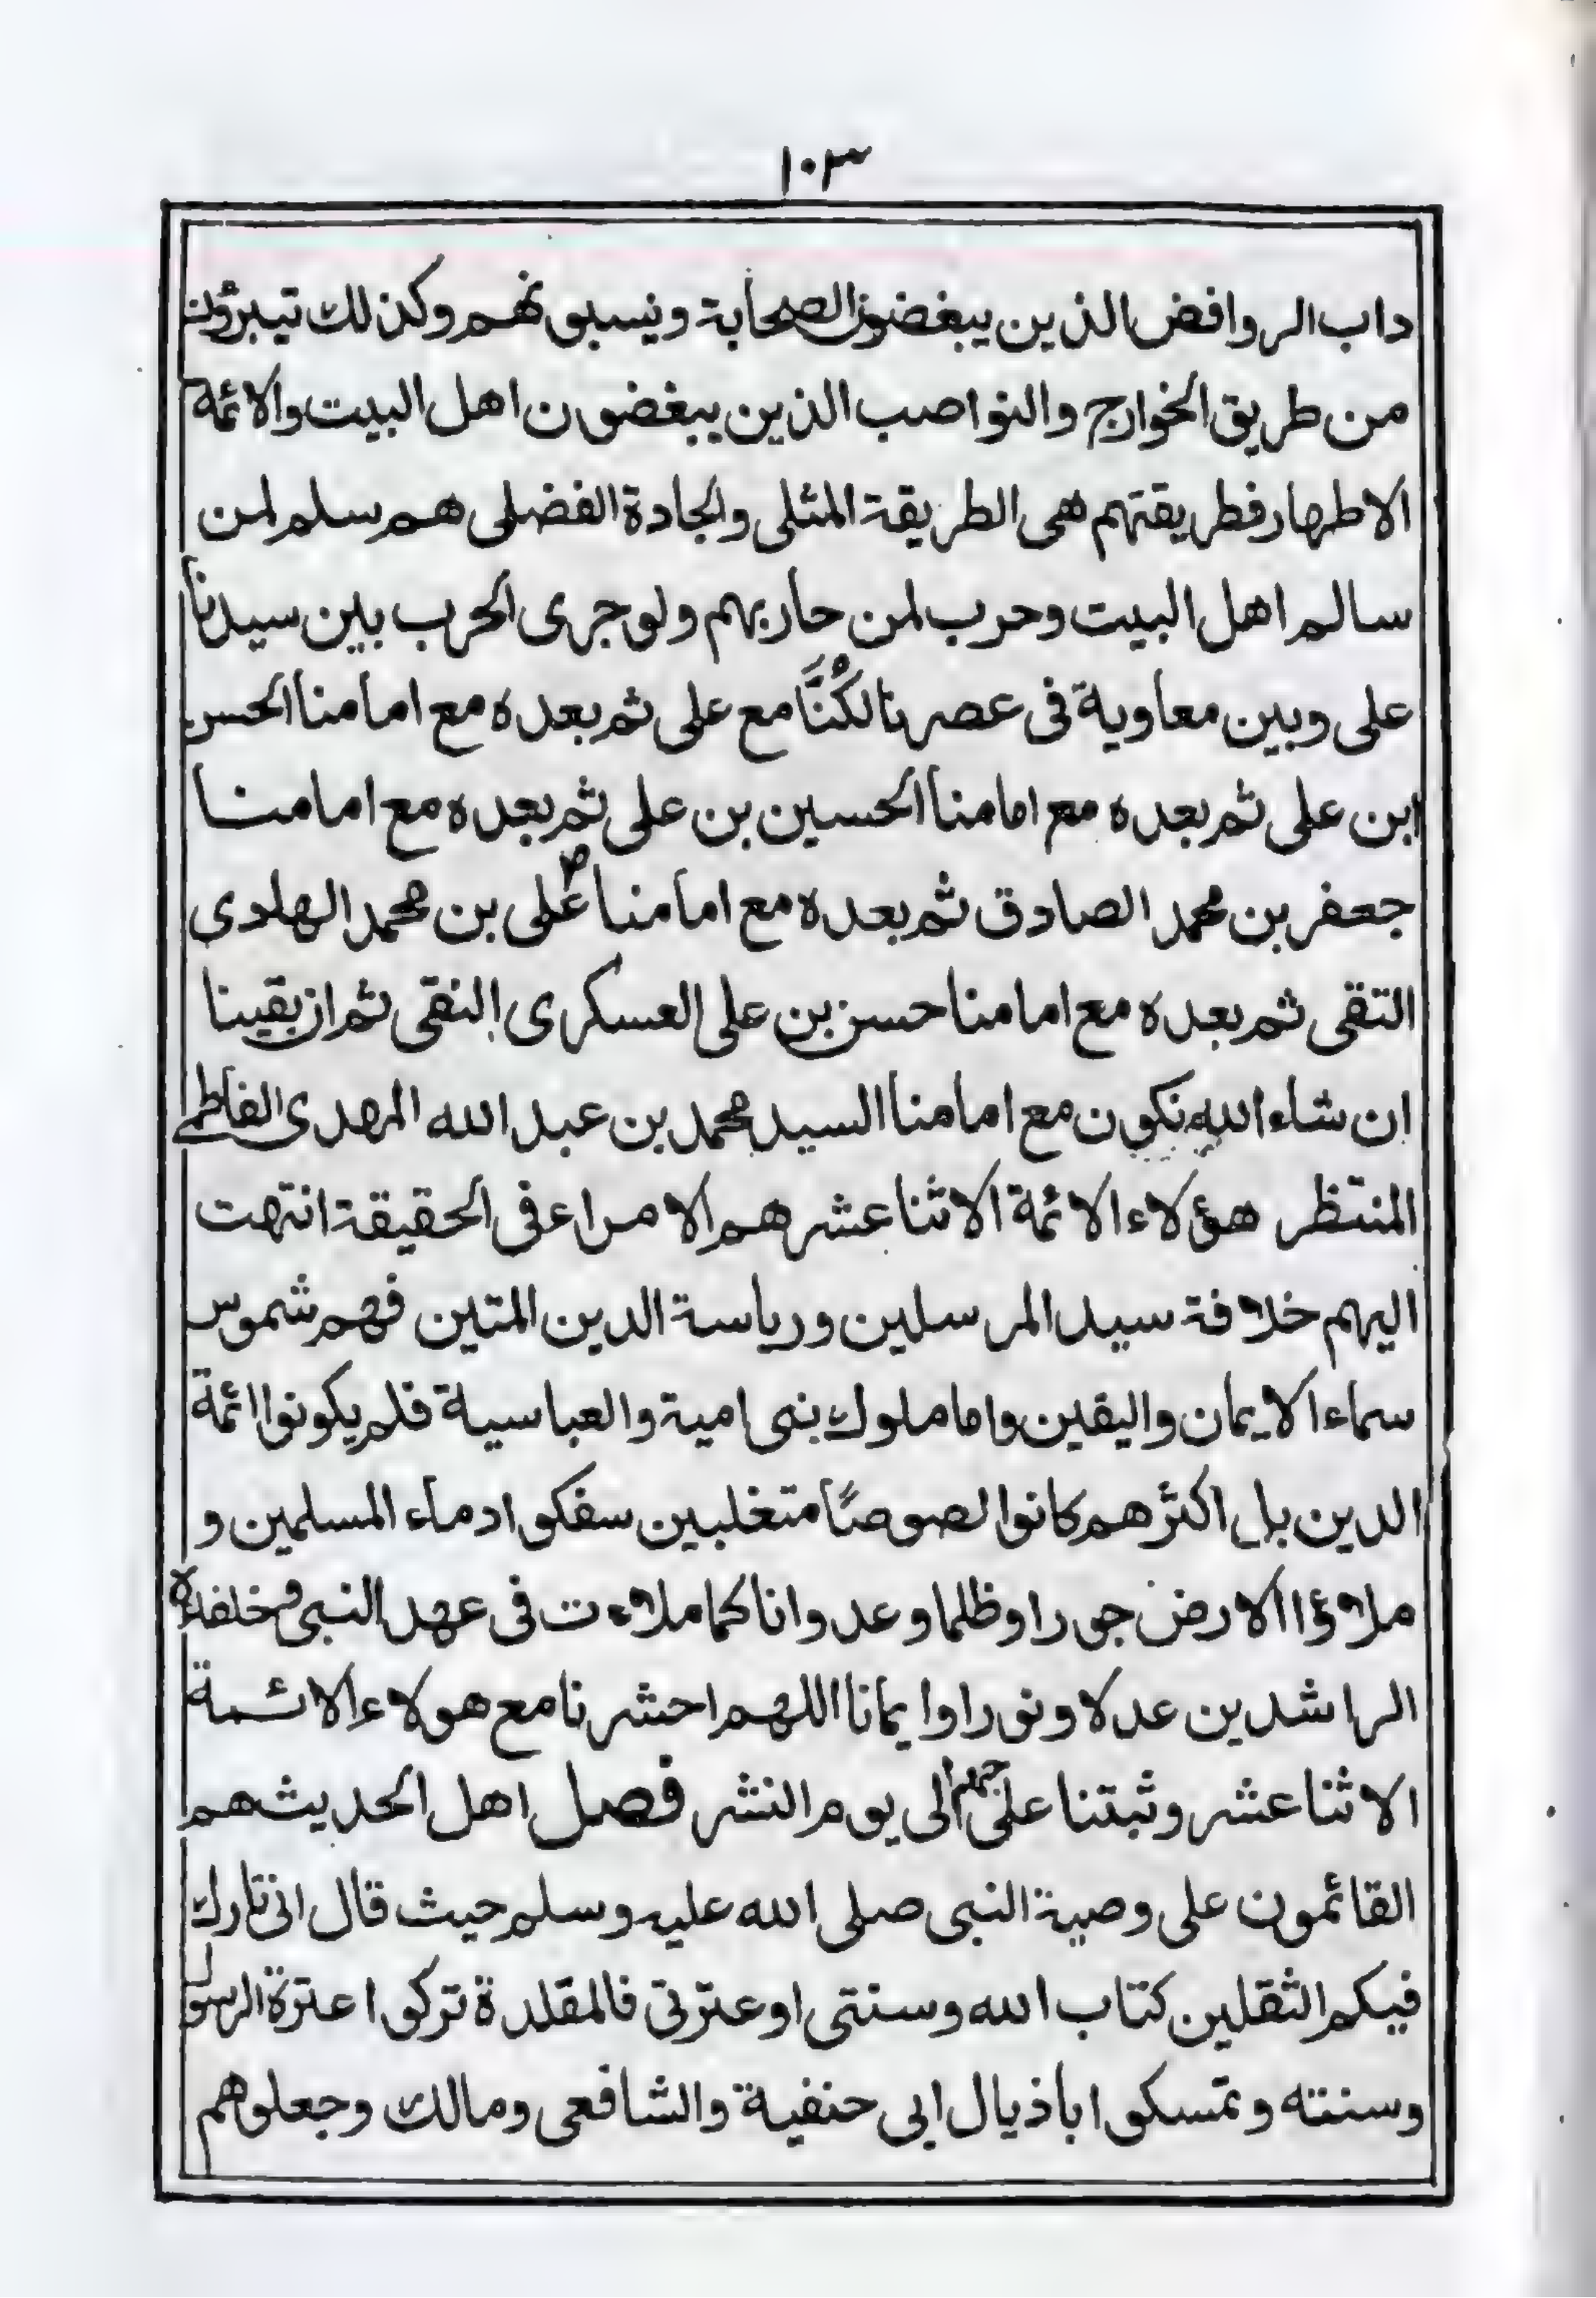 ١٠٣
داب الروافض الذين يبغضون الصحابة ويسبونهم وكذلك تيبرؤن
من طريق الخوارج والنواصب الذين يبغضون اهل البيت والائمة
الاطهار فطريقتهم هى الطريقة المثلى والجادة الفضلى هم سلم لمن
سالم اهل البيت وحرب لمن حاربهم ولو جرى الحرب بين سيدنا
على وبين معاوية فى عصرنا لكُنَّا مع على ثم بعده مع امامنا الحسن
ابن على ثم بعده مع امامنا الحسين بن على ثم بعده مع امامنا
جعفر بن محمد الصادق ثم بعده مع امامنا على بن محمد الهادى
التقى ثم بعده مع امامنا حسن بن على العسكرى النقى ثم ان بقينا
ان شاء الله نكون مع امامنا السيد محمد بن عبد الله المهدى الفاطمى
المنتظر هؤلاء الائمة الاثنا عشر هم الامراء فى الحقيقة انتهت
اليهم خلافة سيد المرسلين ورياسة الدين المتين فهم شموس
سماء الايمان واليقين واما ملوك بنى امية والعباسية فلم يكونوا ائمة
الدين بل اكثرهم كانوا لصوصًا متغلبين سفكوا دماء المسلمين و
ملاؤا الارض جورا وظلما وعدوانا كما ملاءت فى عهد النبى وخلفاءه
الراشدين عدلا ونورا وايمانا اللهم احشرنا مع هولاء الائمة
الاثنا عشر وثبتنا على حبهم الى يوم النشر فصل اهل الحديث هم
القائمون على وصية النبى صلى الله عليه وسلم حيث قال انى تارك
فيكم الثقلين كتاب الله وسنتى او عترتى فالمقلدة تركوا عترة الرسول
وسنته وتمسكوا باذيال ابى حنفية والشافعى ومالك وجعلوهم